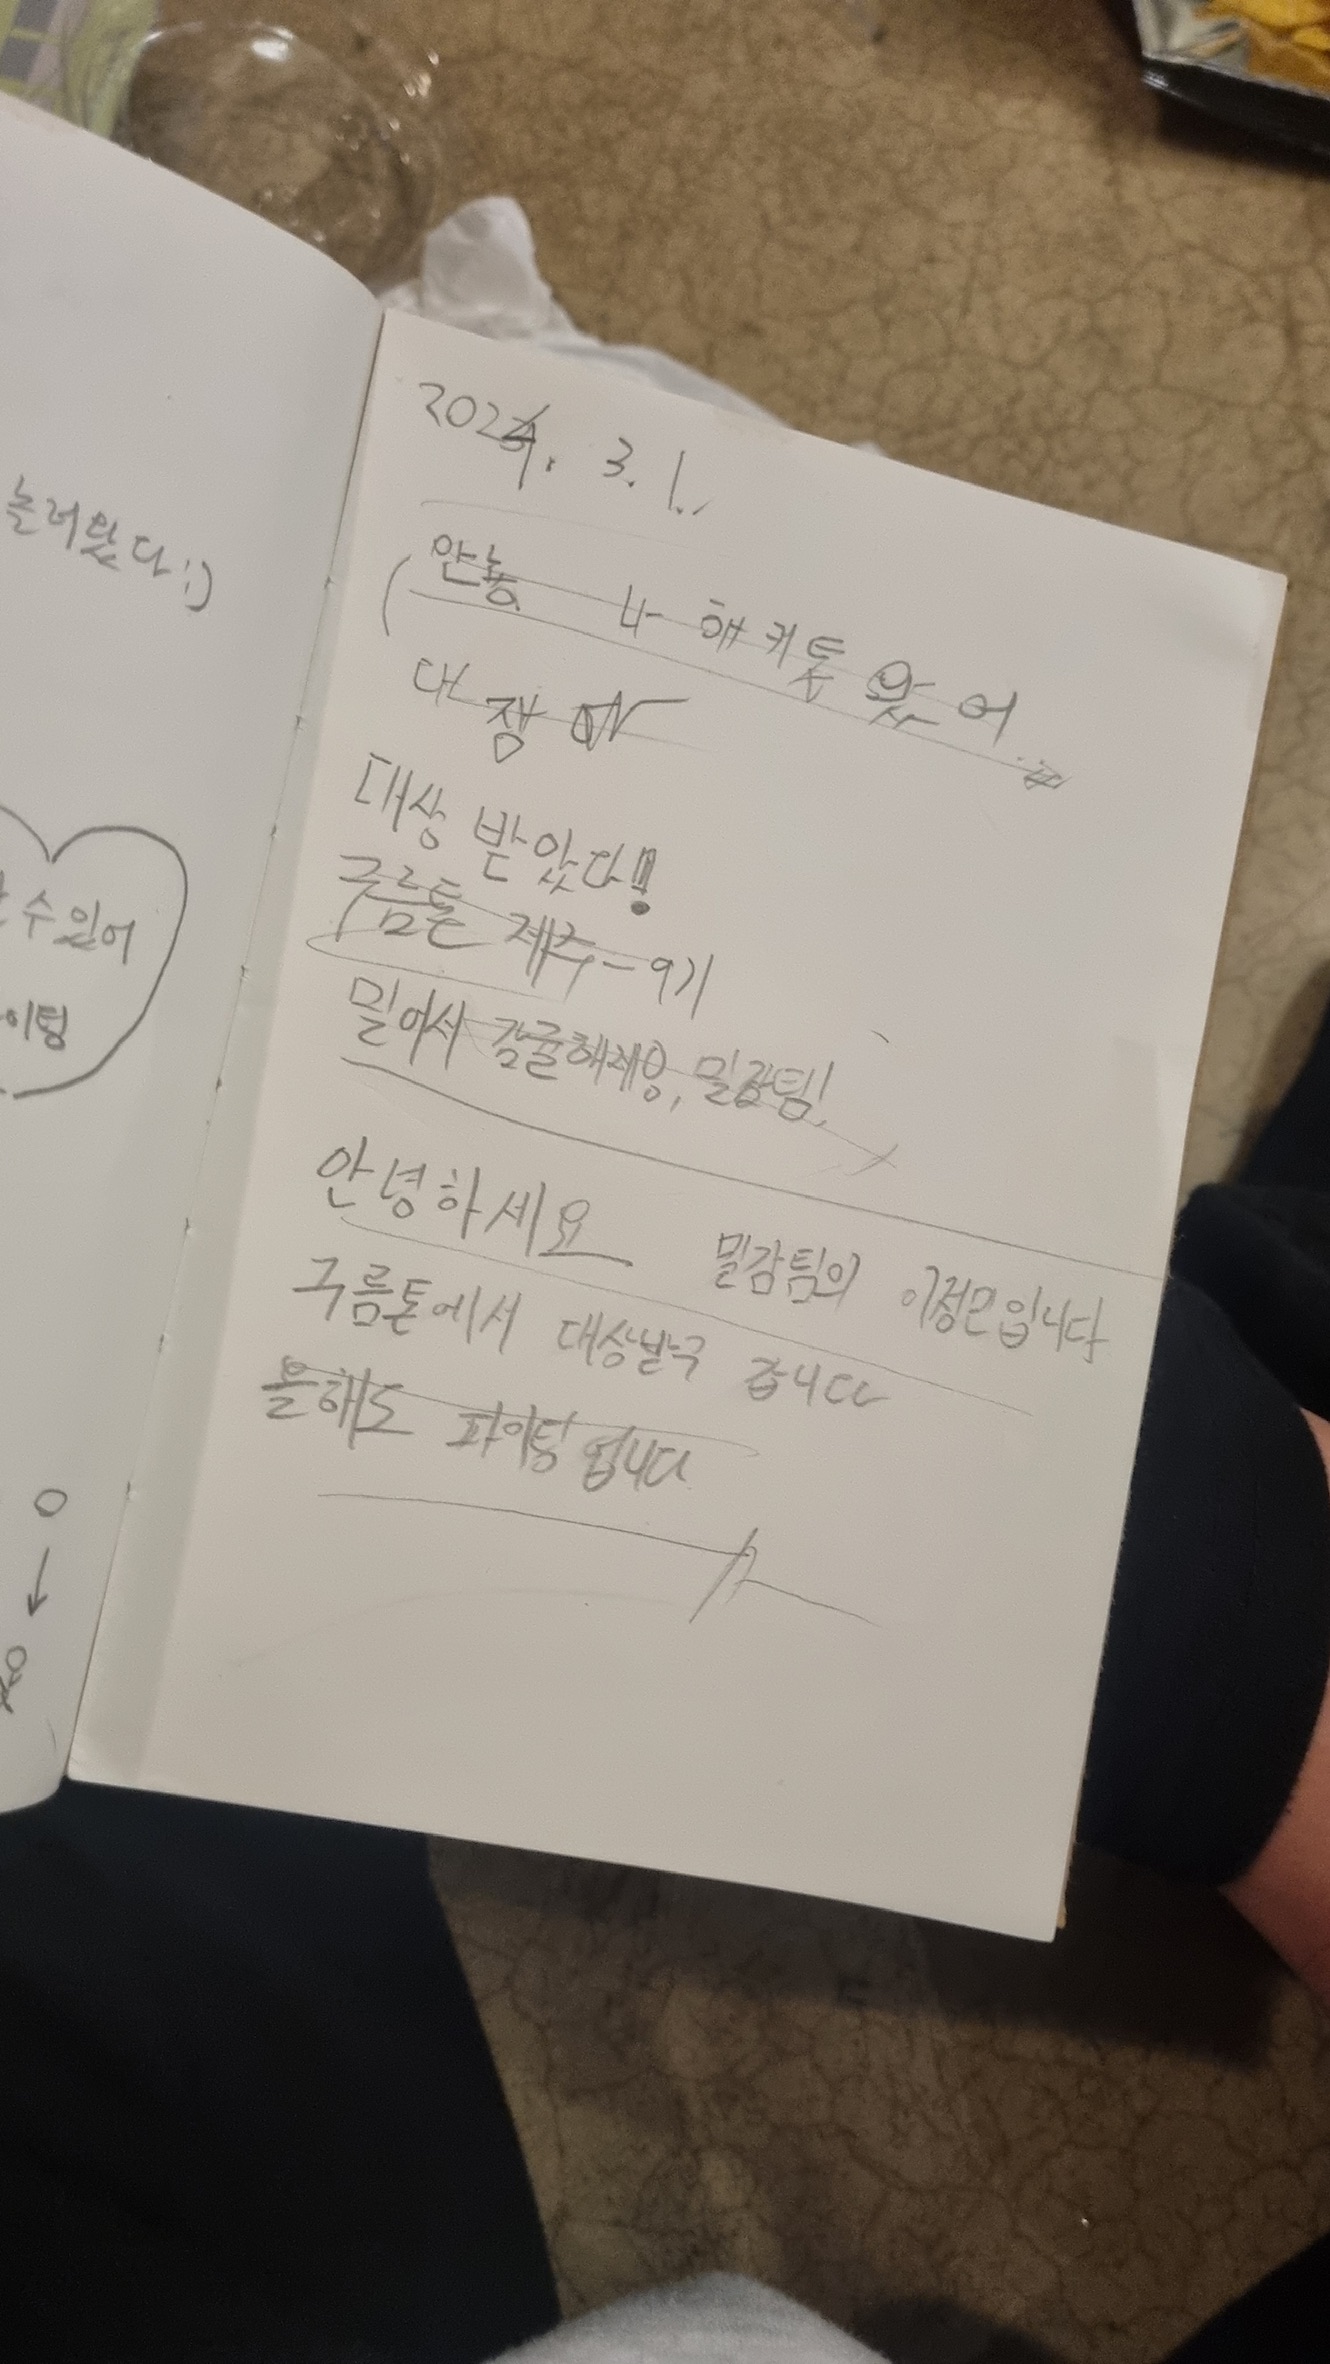 놀러왔다 :)
수 있어
이팅
2024. 3. 1.
안뇽 나 해커톤 왔어
대
대상 받았다!!
구름톤 제주-9기
밀어서 감귤해제용, 밀감팀!
안녕하세요 밀감팀의 이정모입니다
구름톤에서 대상받구 갑니다
올해도 파이팅 입니다